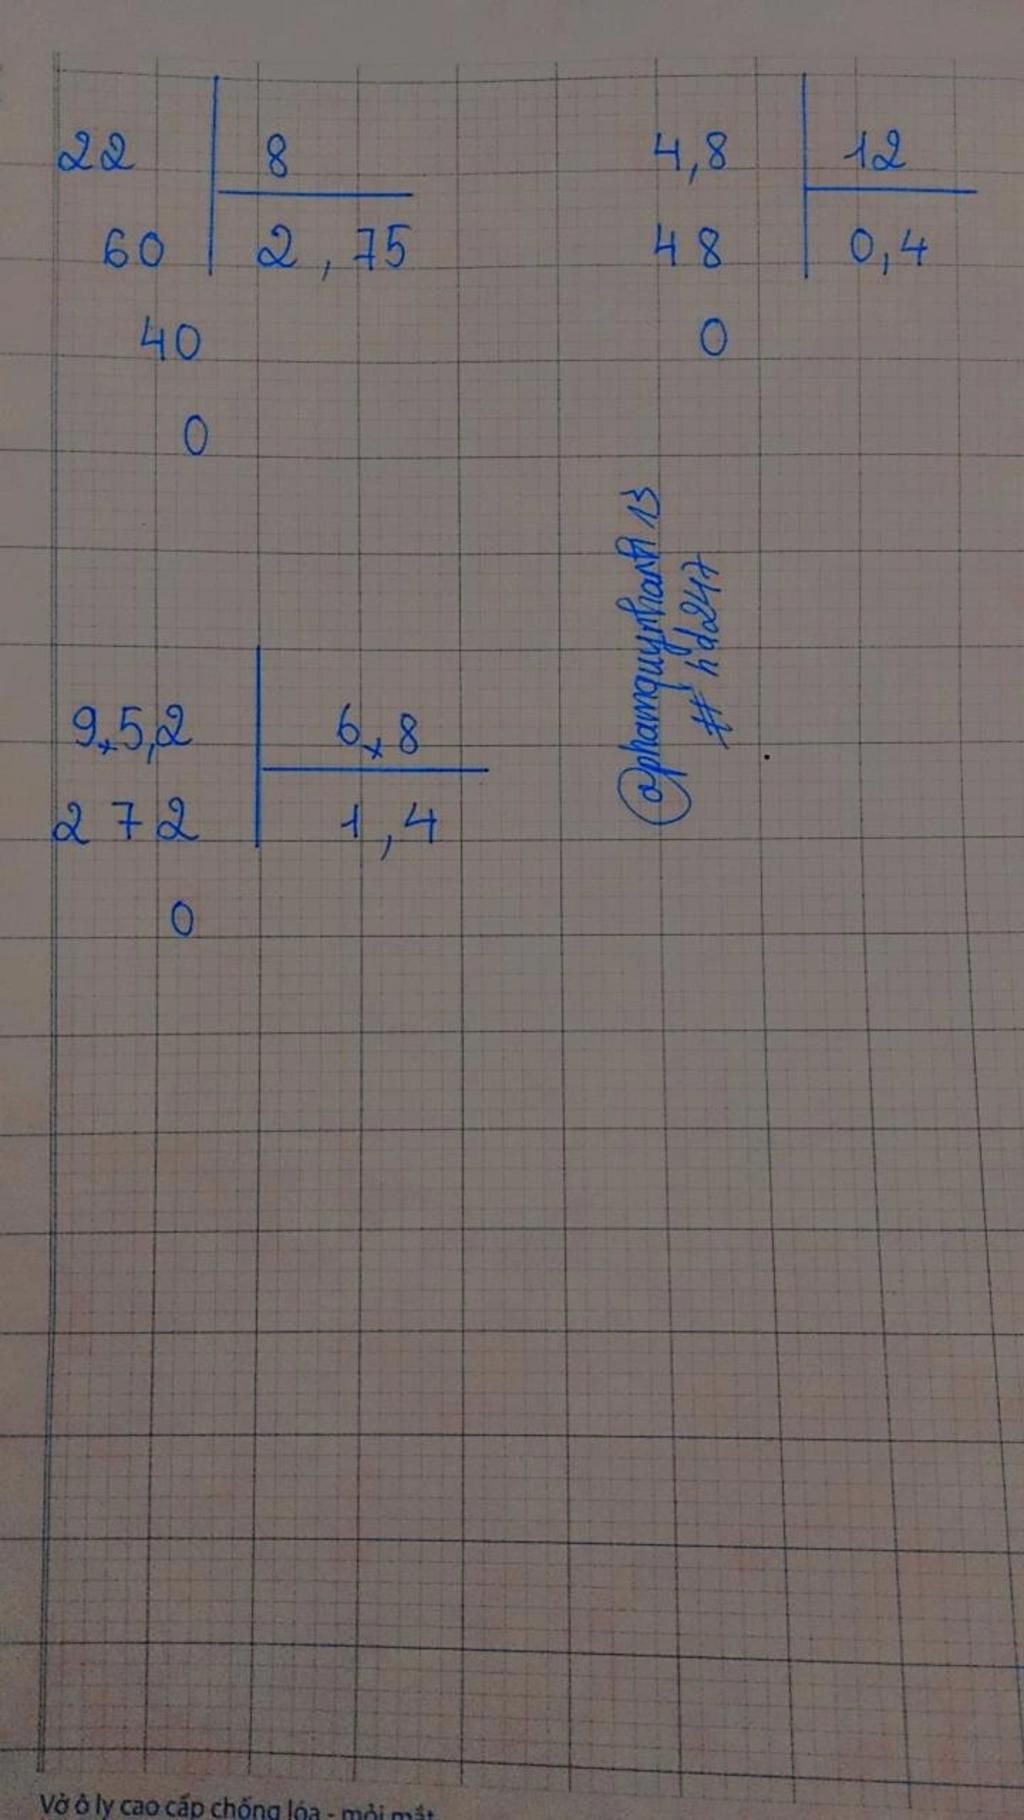 22 8
60 2,75
40
0
4,8 12
48 0,4
0
9,5,2 6,8
272 1,4
0
@phamquynhanh13
#hd247
Vở ô ly cao cấp chống lóa - mỏi mắt